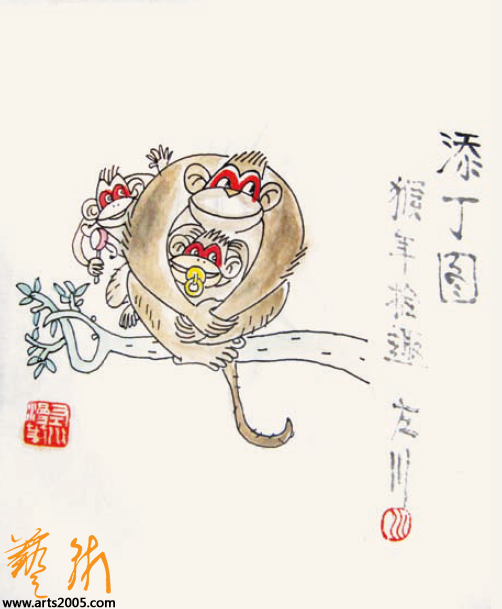 添丁图
猴年拾趣 左川
艺术
www.arts2005.com